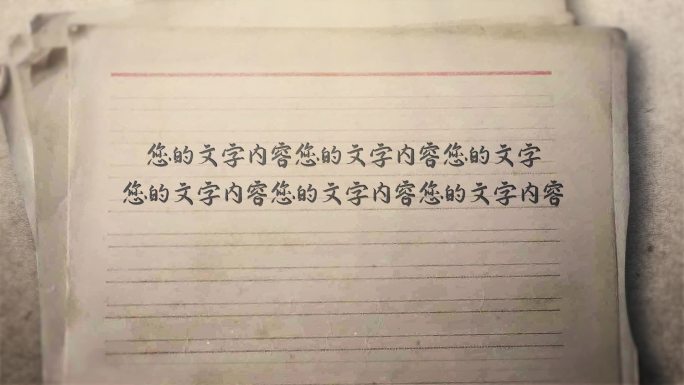 您的文字内容您的文字内容您的文字
您的文字内容您的文字内容您的文字内容